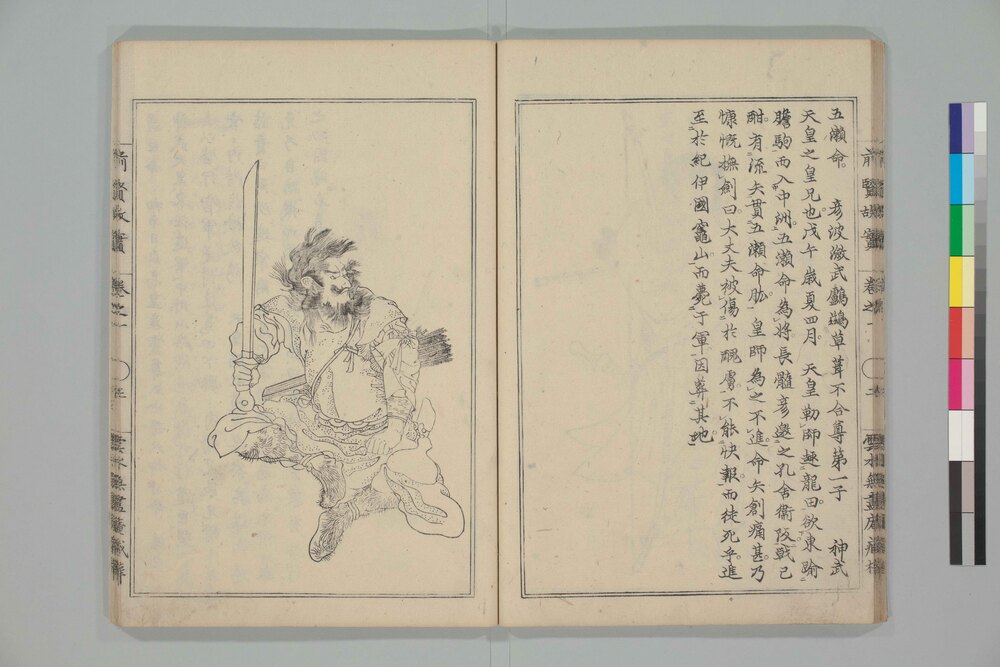 五瀬命。彦波瀲武鸕鷀草葺不合尊第一子 神武
天皇之皇兄也戊午歳夏四月。天皇勒師趣龍田欲東踰
膽駒而入中洲五瀬命為將長髓彦邀之孔舎衛阪戰已
酣有流矢貫五瀬命肱 皇師為之不進命矢創痛甚乃
慷慨撫劍曰大丈夫被傷於醜虜不能快報而徒死乎進
至於紀伊國竈山而薨于軍因葬其地
前賢故實 卷之一